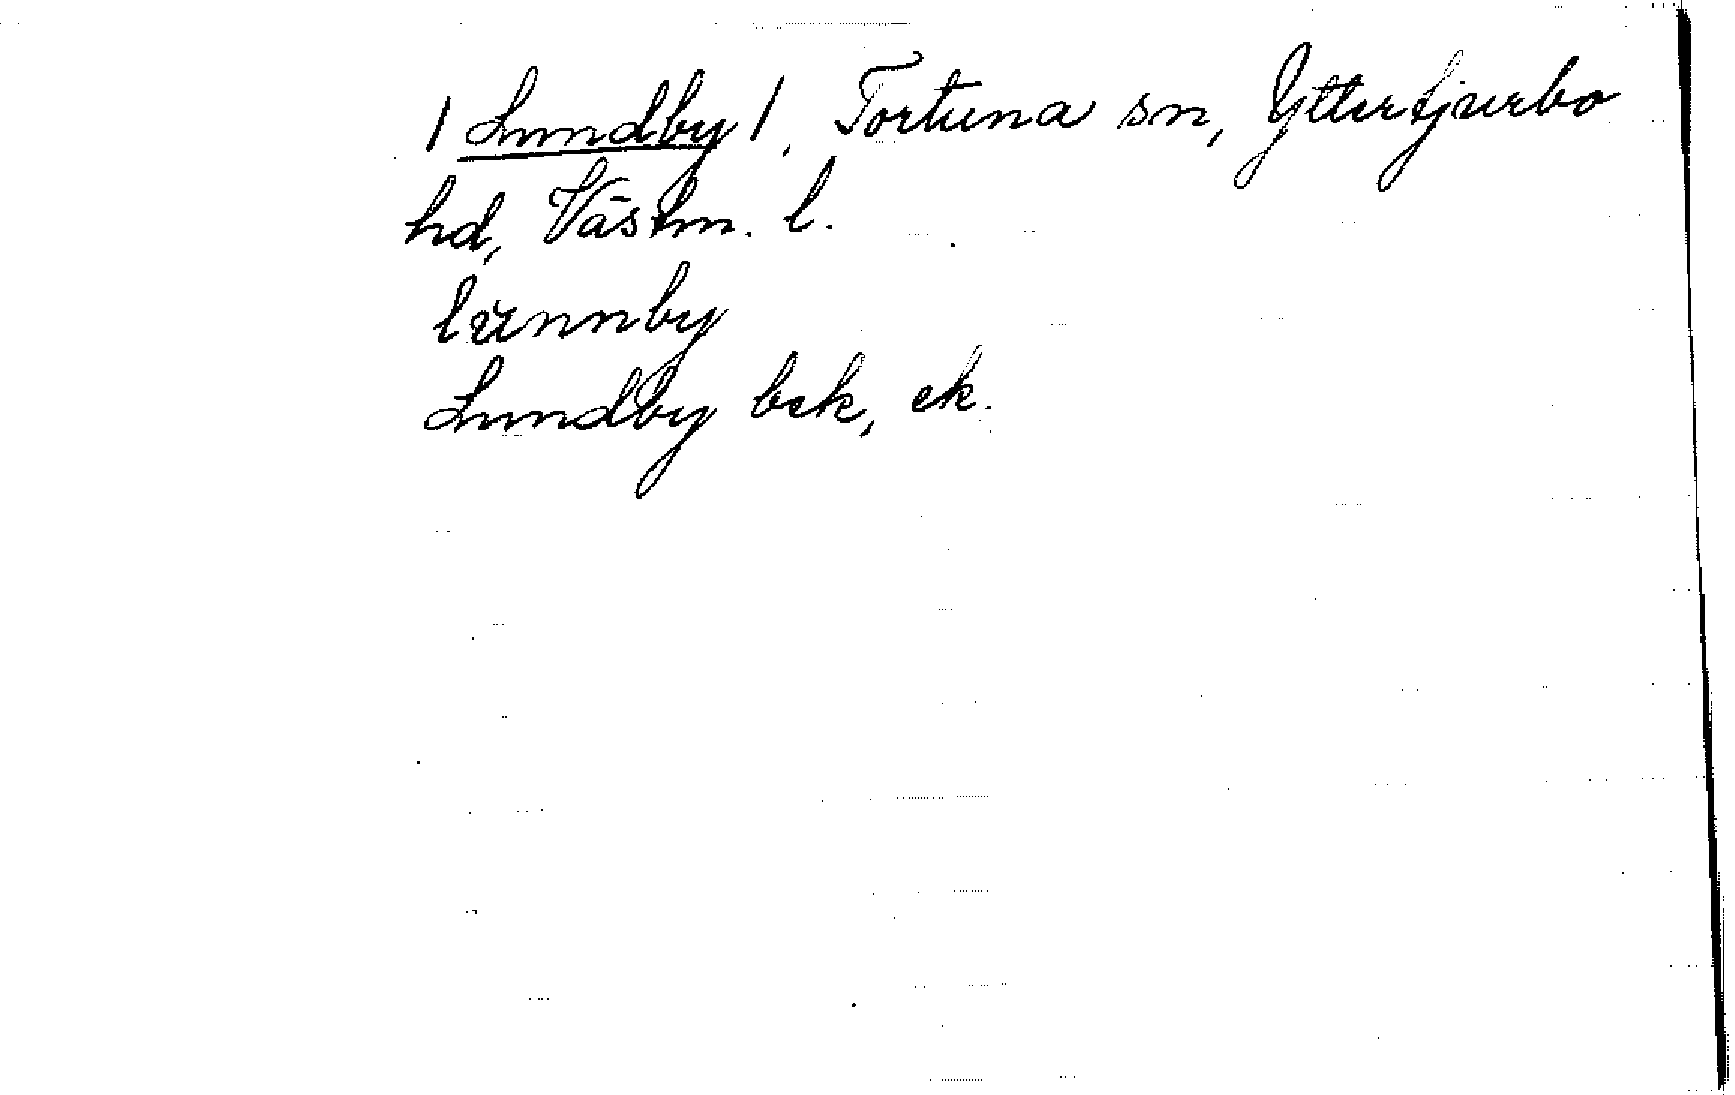 / Lundby /, Tortuna sn, Yttertjurbo
hd, Västm. l.
lu̇nnby
Lundby bek, ek.